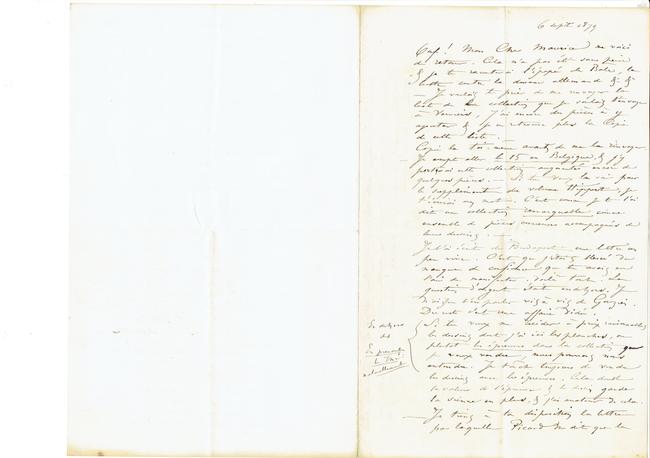 6 sept 1879
Ouf! Mon Cher Maurice me voici
de retour. Cela n'a pas été sans peine
& je te raconterai l'épopée de Bâle, la
lutte contre la douane allemande & &
— Je voulais te prier de me renvoyer la
liste de la collection que je voulais envoyer
à Verviers. J'ai encore des pièces à y
ajouter & je ne retrouve plus la copie
de cette liste.
Copie la toi-même avant de me la renvoyer
Je compte aller le 15 en Belgique & j'y
porterai cette collection augmentée encore de
quelques pièces. — Si tu veux la voir pour
le supplément du volume Hippert, je
t'enverrai
C'est comme je te l'ai
dit une collection remarquable comme
ensemble de pièces curieuses accompagnées de
leurs dessins. —
Je t'ai écrit de Budapest une lettre un
peu vive. C'est que j'étais blessé du
manque de confiance que tu avais
l'air de manifester. Voilà tout. La
question d'argent était
Je
vis à vis de
Du reste c'est une affaire
Si tu veux me céder à prix raisonnable
les dessins dont j'ai ici les planches, ou
plutôt les épreuves dans la collection que
je veux vendre, nous pourrons nous
entendre. Je tâche toujours de vendre
les dessins avec les épreuves. Cela double
la valeur de l'épreuve & le dessin garde
la sienne en plus, &
de cela.
— Je tiens à ta disposition la lettre
par laquelle Picard me dit que la